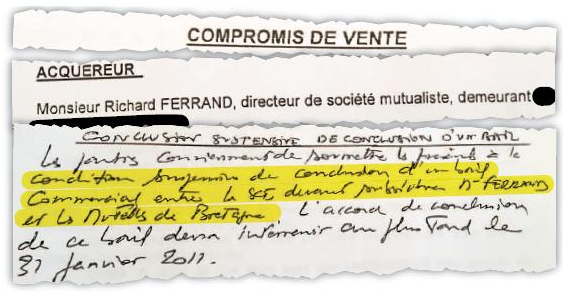 COMPROMIS DE VENTE
ACQUEREUR
Monsieur Richard FERRAND, directeur de société mutualiste, demeurant
CONCLUSION SUSPENSIVE DE CONCLUSION D'UN BAIL
Les parties conviennent de soumettre le présent à la
condition suspensive de conclusion d'un bail
Commercial entre la SCI devant M. FERRAND
et les Mutuelles de Bretagne L'accord de conclusion
de ce bail devra intervenir au plus tard le
31 janvier 2011.